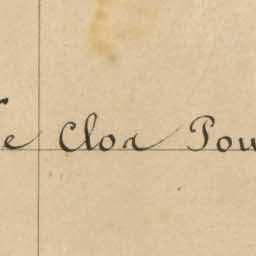 e Clox Pow